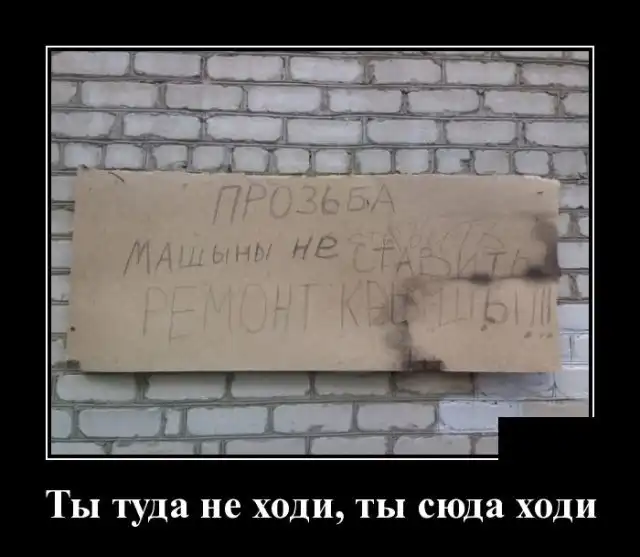 ПРОЗЬБА
МАШЫНЫ НЕ СТАВИТЬ
РЕМОНТ
Ты туда не ходи, ты сюда ходи